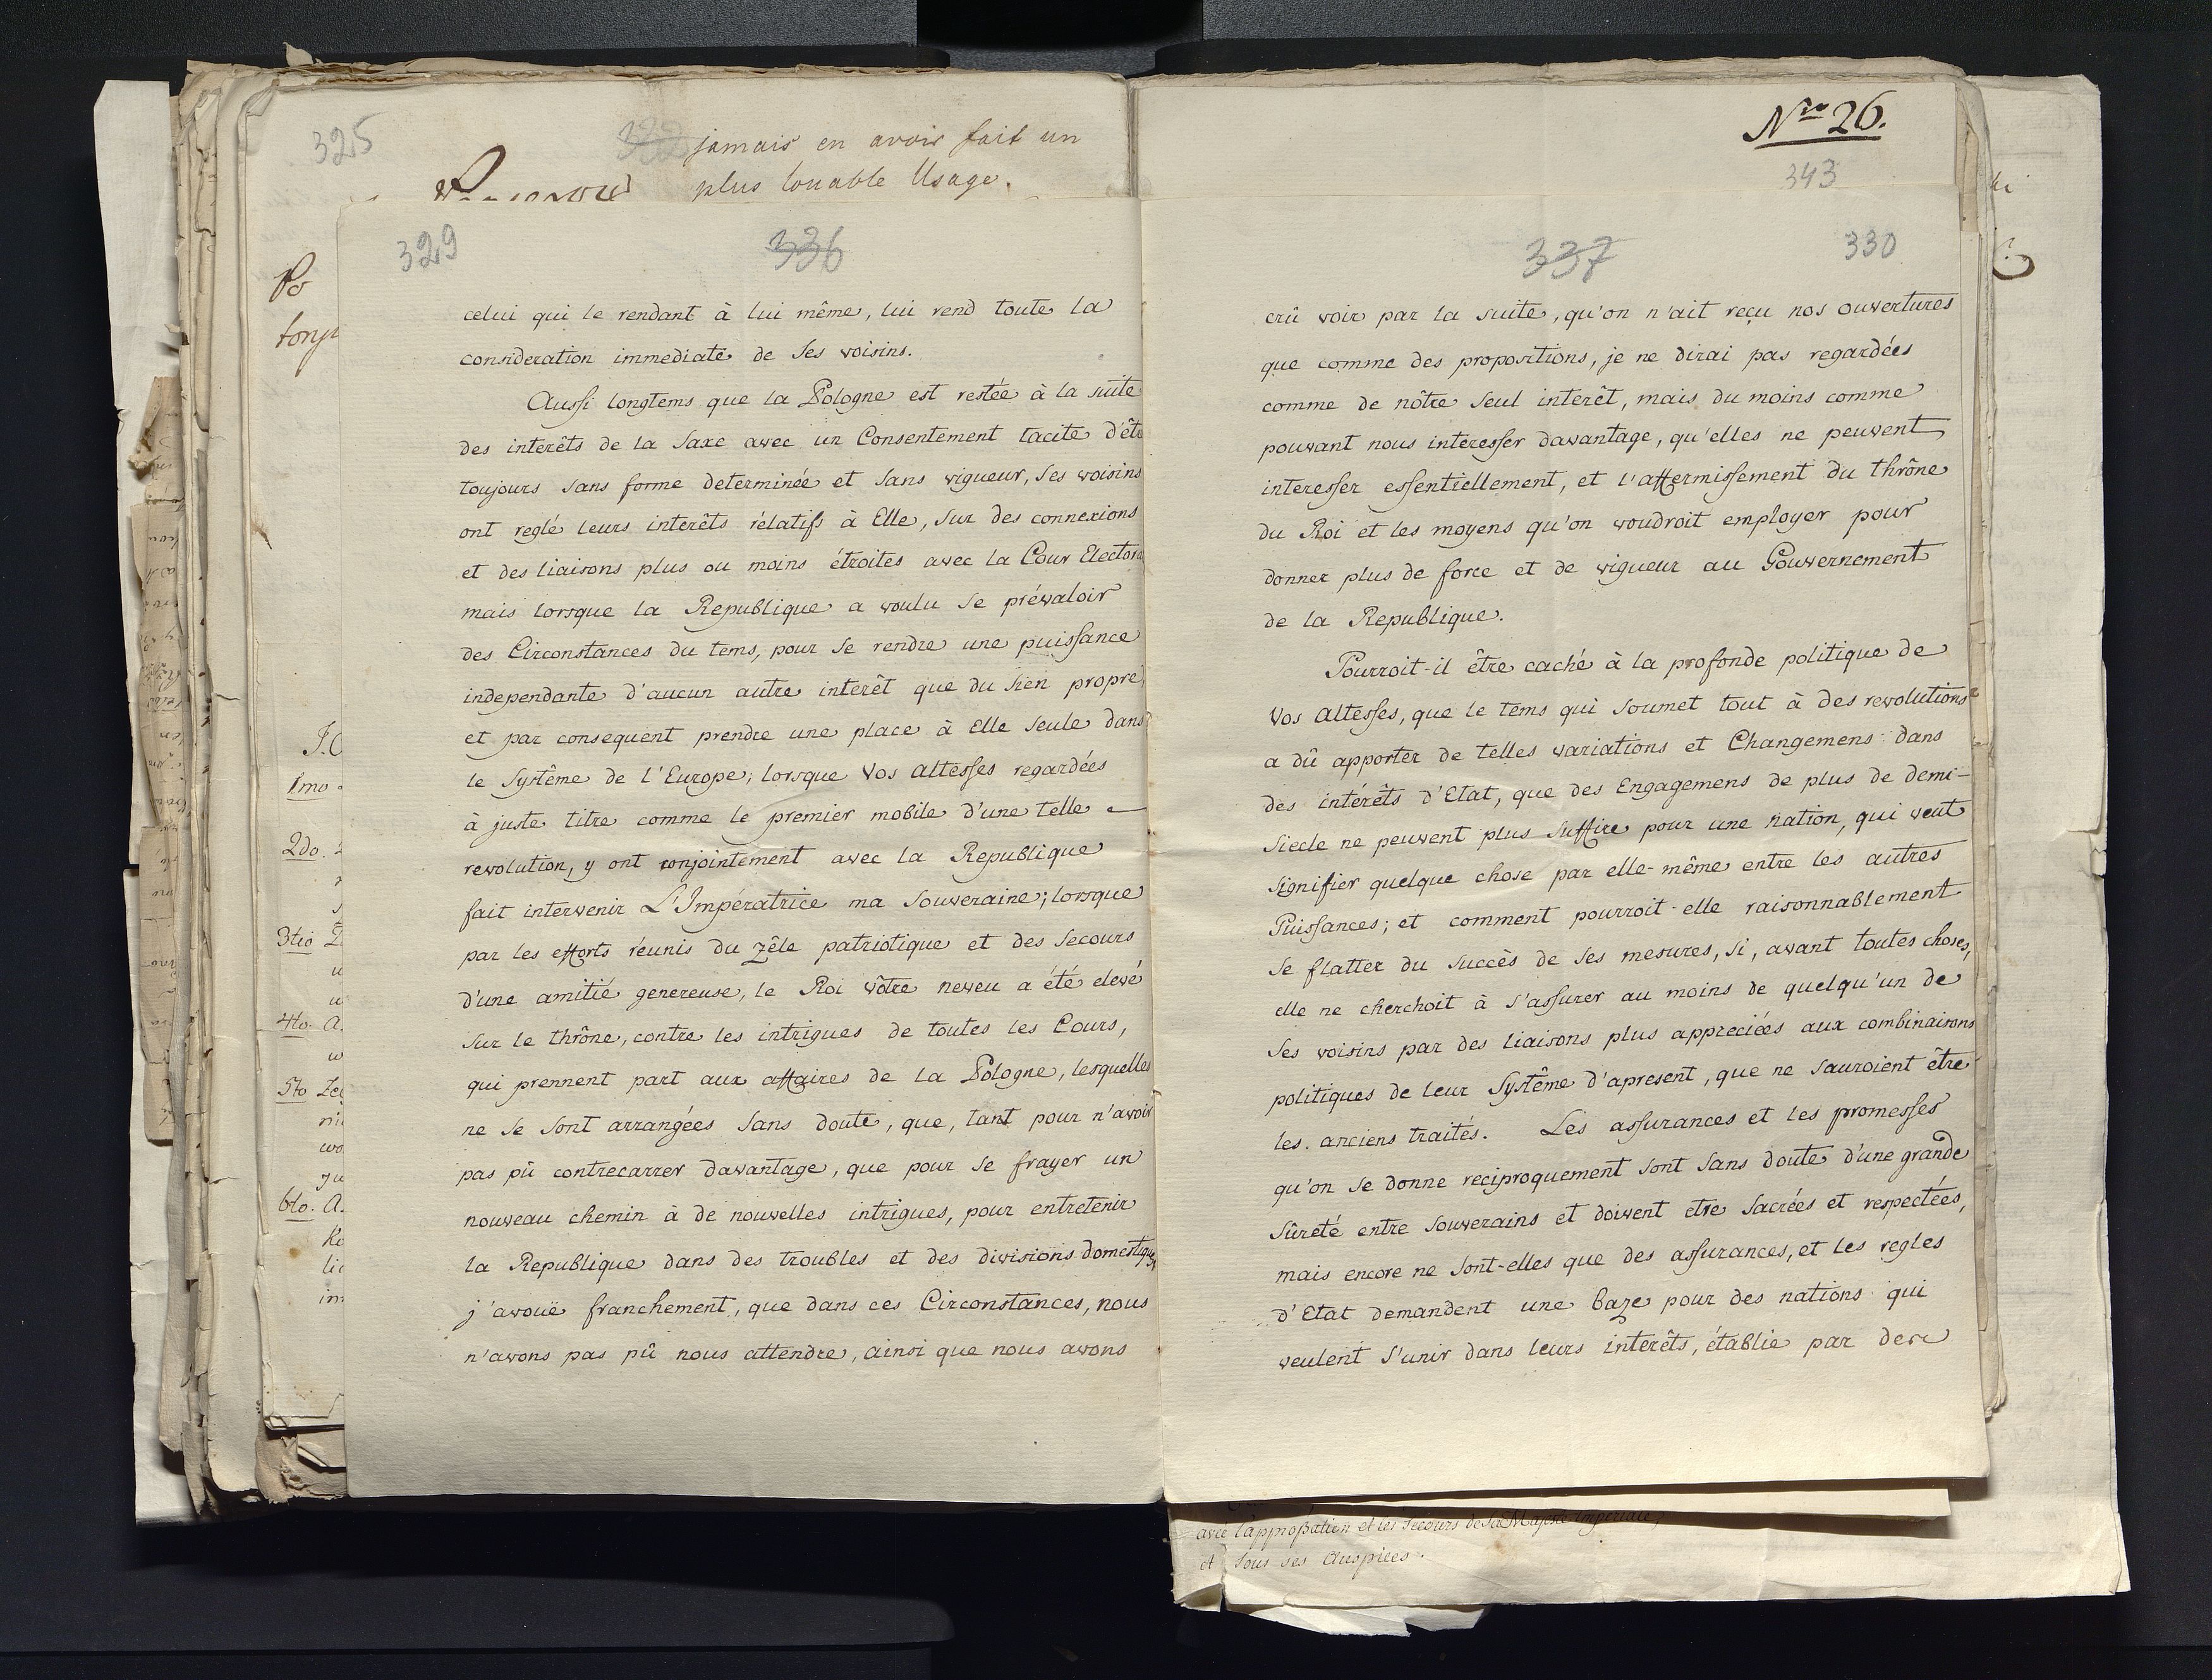 325
322
jamais en avoir fait un
plus louable Usage.
329
336
celui qui le rendant à lui même, lui rend toute la
consideration immediate de Ses voisins.
Aussi longtems que la Pologne est restée à la suite
des interêts de la Saxe avec un Consentement tacite d'êtr
toujours sans forme determinée et sans vigueur, Ses voisins
ont reglé leurs interêts rélatifs à Elle, Sur des connexions
et des liaisons plus ou moins étroites avec la Cour Electora
mais lorsque la Republique a voulu Se prévaloir
des Circonstances du tems, pour Se rendre une puissance
independante d'aucun autre interêt que du Sien propre,
et par consequent prendre une place à Elle Seule dans
le Systême de l'Europe; lorsque Vos Altesses regardées
à juste titre comme le premier mobile d'une telle
revolution, y ont conjointement avec la Republique
fait intervenir L'Impératrice ma Souveraine; lorsque
par les efforts réunis du zêle patriotique et des Secours
d'une amitié genereuse, le Roi vôtre neveu a été elevé
Sur le thrône, contre les intrigues de toutes les Cours,
qui prennent part aux affaires de la Pologne, lesquelles
ne Se Sont arrangées Sans doute, que, tant pour n'avoir
pas pû contrecarrer davantage, que pour Se frayer un
nouveau chemin à de nouvelles intrigues, pour entretenir
la Republique dans des troubles et des divisions domestiques,
j'avouë franchement, que dans ces Circonstances, nous
n'avons pas pû nous attendre, ainsi que nous avons
Nro 26.
343
337
330
crû voir par la suite, qu'on n'ait reçu nos ouvertures
que comme des propositions, je ne dirai pas regardées
comme de nôtre Seul interêt, mais du moins comme
pouvant nous interesser davantage, qu'elles ne peuvent
interesser essentiellement, et l'affermissement du thrône
du Roi et les moyens qu'on voudroit employer pour
donner plus de force et de vigueur au Gouvernement
de la Republique.
Pourroit-il être caché à la profonde politique de
Vos Altesses, que le tems qui Soumet tout à des revolutions
a dû apporter de telles variations et Changemens dans
des intérêts d'Etat, que des Engagemens de plus de demi-
Siecle ne peuvent plus Suffire pour une nation, qui veut
Signifier quelque chose par elle-même entre les autres
Puissances; et comment pourroit-elle raisonnablement
Se flatter du Succès de Ses mesures, Si, avant toutes choses,
elle ne cherchoit à S'assurer au moins de quelqu'un de
Ses voisins par des liaisons plus appreciées aux combinaisons
politiques de leur Systême d'apresent, que ne Sauroient être
les anciens traités. Les assurances et les promesses
qu'on Se donne reciproquement Sont Sans doute d'une grande
Sûreté entre Souverains et doivent etre Sacrées et respectées,
mais encore ne Sont-elles que des assurances, et les regles
d'Etat demandent une baze pour des nations qui
veulent S'unir dans leurs interêts, établie par des
avec l'approbation et les Secours de Sa Majesté Imperiale,
et Sous ses Auspices.
Po
J.C
1mo
2do.
3tio
4to. A.
5to
6to. A.